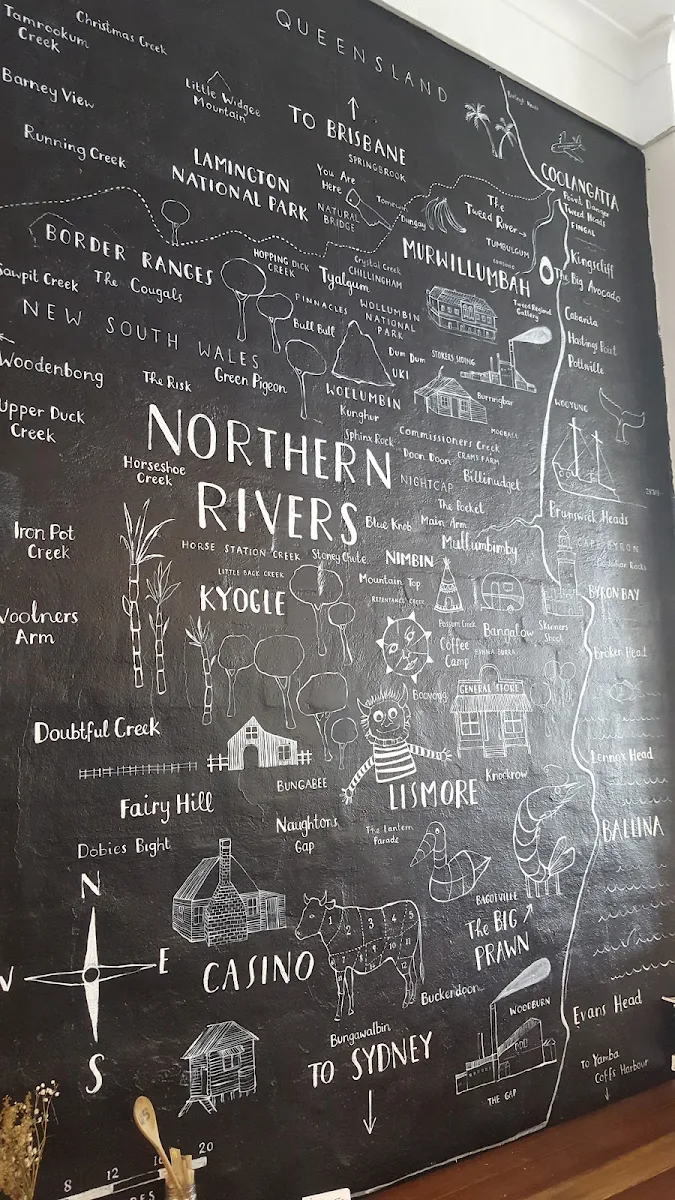 QUEENSLAND
Tamrookum
Creek
Christmas Creek
Barney View
Little Widgee
Mountain
TO BRISBANE
SPRINGBROOK
Running Creek
LAMINGTON
NATIONAL PARK
You Are
Here
NATURAL
BRIDGE
Dungay
The
Tweed River
TUMBULGUM
CONDONG
COOLANGATTA
Point Danger
Tweed Heads
FINGAL
BORDER RANGES
HOPPING DICK
CREEK
Crystal Creek
CHILLINGHAM
Tyalgum
MURWILLUMBAH
Kingscliff
The Big Avocado
Sawpit Creek
The Cougals
PINNACLES
WOLLUMBIN
NATIONAL
PARK
Tweed Regional
Gallery
Cabarita
NEW SOUTH WALES
Bull Bull
Hastings Point
Pottsville
Woodenbong
The Risk
Green Pigeon
Dum Dum
UKI
STOKERS SIDING
WOLLUMBIN
Burringbar
WOOYUNG
Upper Duck
Creek
Kunghur
MOOBALL
NORTHERN
RIVERS
Sphinx Rock
Commissioners Creek
Doon Doon
CRAMS FARM
Horseshoe
Creek
NIGHTCAP
Billinudgel
The Pocket
Blue Knob
Main Arm
Mullumbimby
Brunswick Heads
Iron Pot
Creek
HORSE STATION CREEK
Stoney Chute
NIMBIN
CAPE BYRON
LITTLE BACK CREEK
Mountain Top
KYOGLE
REPENTANCE CREEK
BYRON BAY
Woolners
Arm
Possum Creek
Bangalow
Skinners
Shoot
Coffee
Camp
BINNA BURRA
Broken Head
Booyong
GENERAL STORE
Doubtful Creek
Lennox Head
BUNGABEE
Knockrow
Fairy Hill
LISMORE
Naughtons
Gap
The Lantern
Parade
BALLINA
Dobies Bight
N
BAGOTVILLE
The BIG
PRAWN
W
E
CASINO
1 2 3 4 5
Buckendoon
WOODBURN
Evans Head
Bungawalbin
TO SYDNEY
S
To Yamba
Coffs Harbour
THE GAP
8 12 16 20